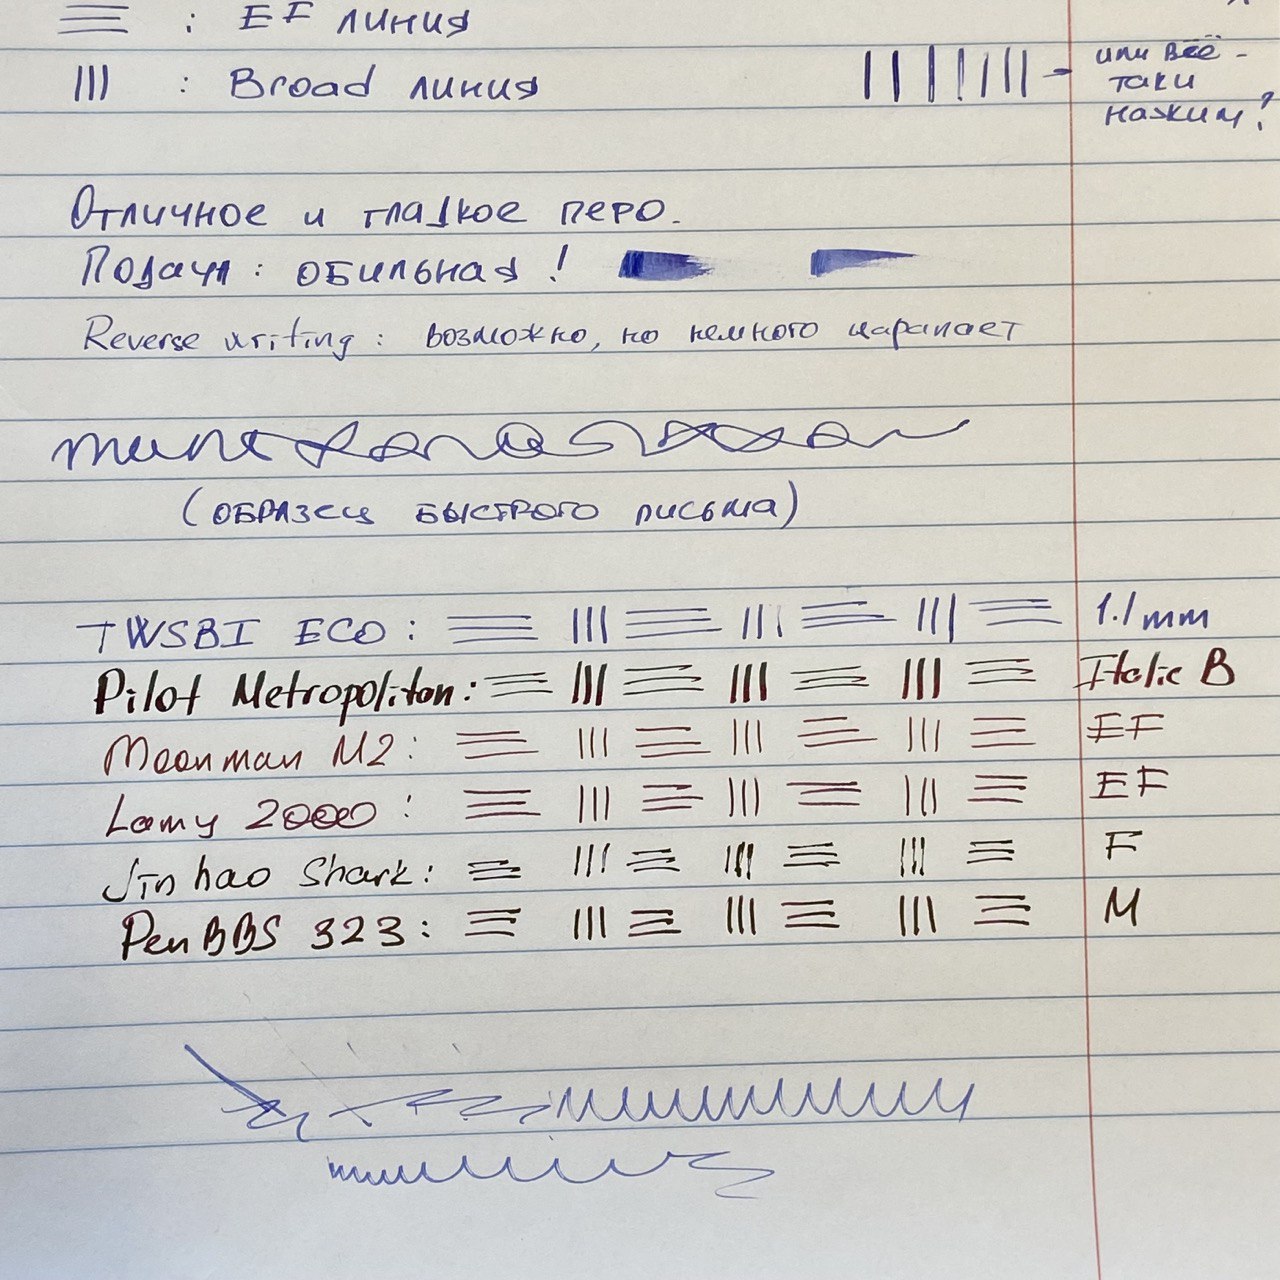 : EF линия
: Broad линия
или всё-
таки
нажим?
Отличное и гладкое перо.
Подача: обильная!
Reverse writing: возможно, но немного царапает
(образец быстрого письма)
TWSBI ECO: 1.1 mm
Pilot Metropolitan: Italic B
Moonman M2: EF
Lamy 2000: EF
Jinhao Shark: F
PenBBS 323: M